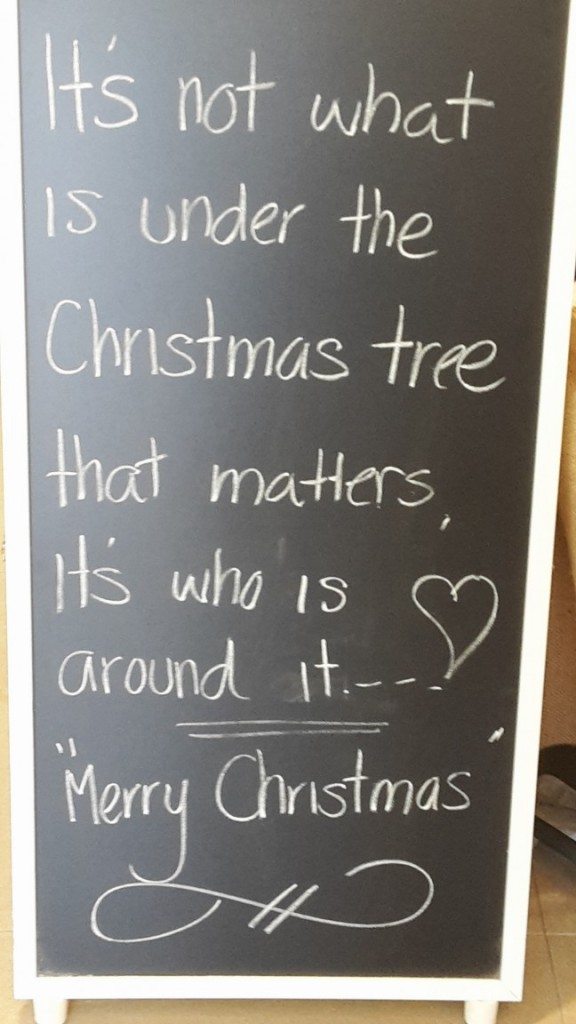 It's not what
is under the
Christmas tree
that matters,
It's who is
around it.---
"Merry Christmas"